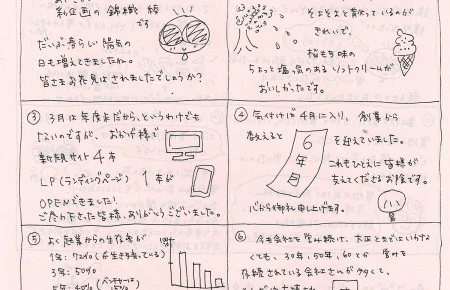 新企画の 錦織 綾
です
だいぶ春らしい 陽気の
日も増えてきましたね。
皆さまお花見はされましたでしょうか？
そよそよと
いるのが
きれいで、
桜もち味の
ちょっと塩気のあるソフトクリームが
おいしかったです。
③ 3月は年度末だから、というわけでも
ないのですが、おかげ様で
新規サイト 4本
LP (ランディングページ) 1本が
OPENできました!
ご尽力下さった皆様、ありがとうございました。
④ 気付けば 4月に入り、創業から
数えると
6年目
を迎えていました。
これもひとえに皆様が
支えてくださるお陰です。
心から御礼申し上げます。
⑤ よく起業からの生存率が
1年: 72% (が生き残っている)
3年: 50%
100%
⑥ 今も会社を営み続け、大正とまでいかな
くても、30年、50年、60とか 営みを
存続されている会社さんが多くて、